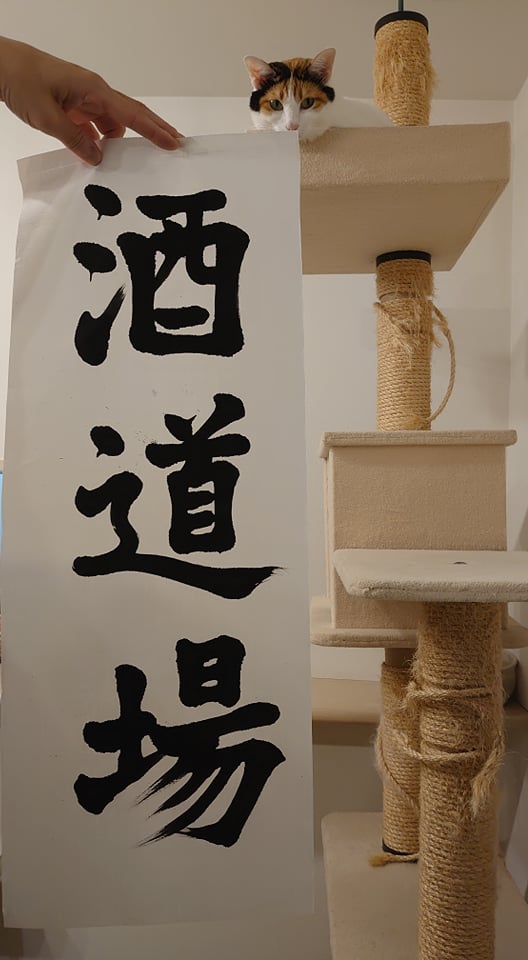 酒道場